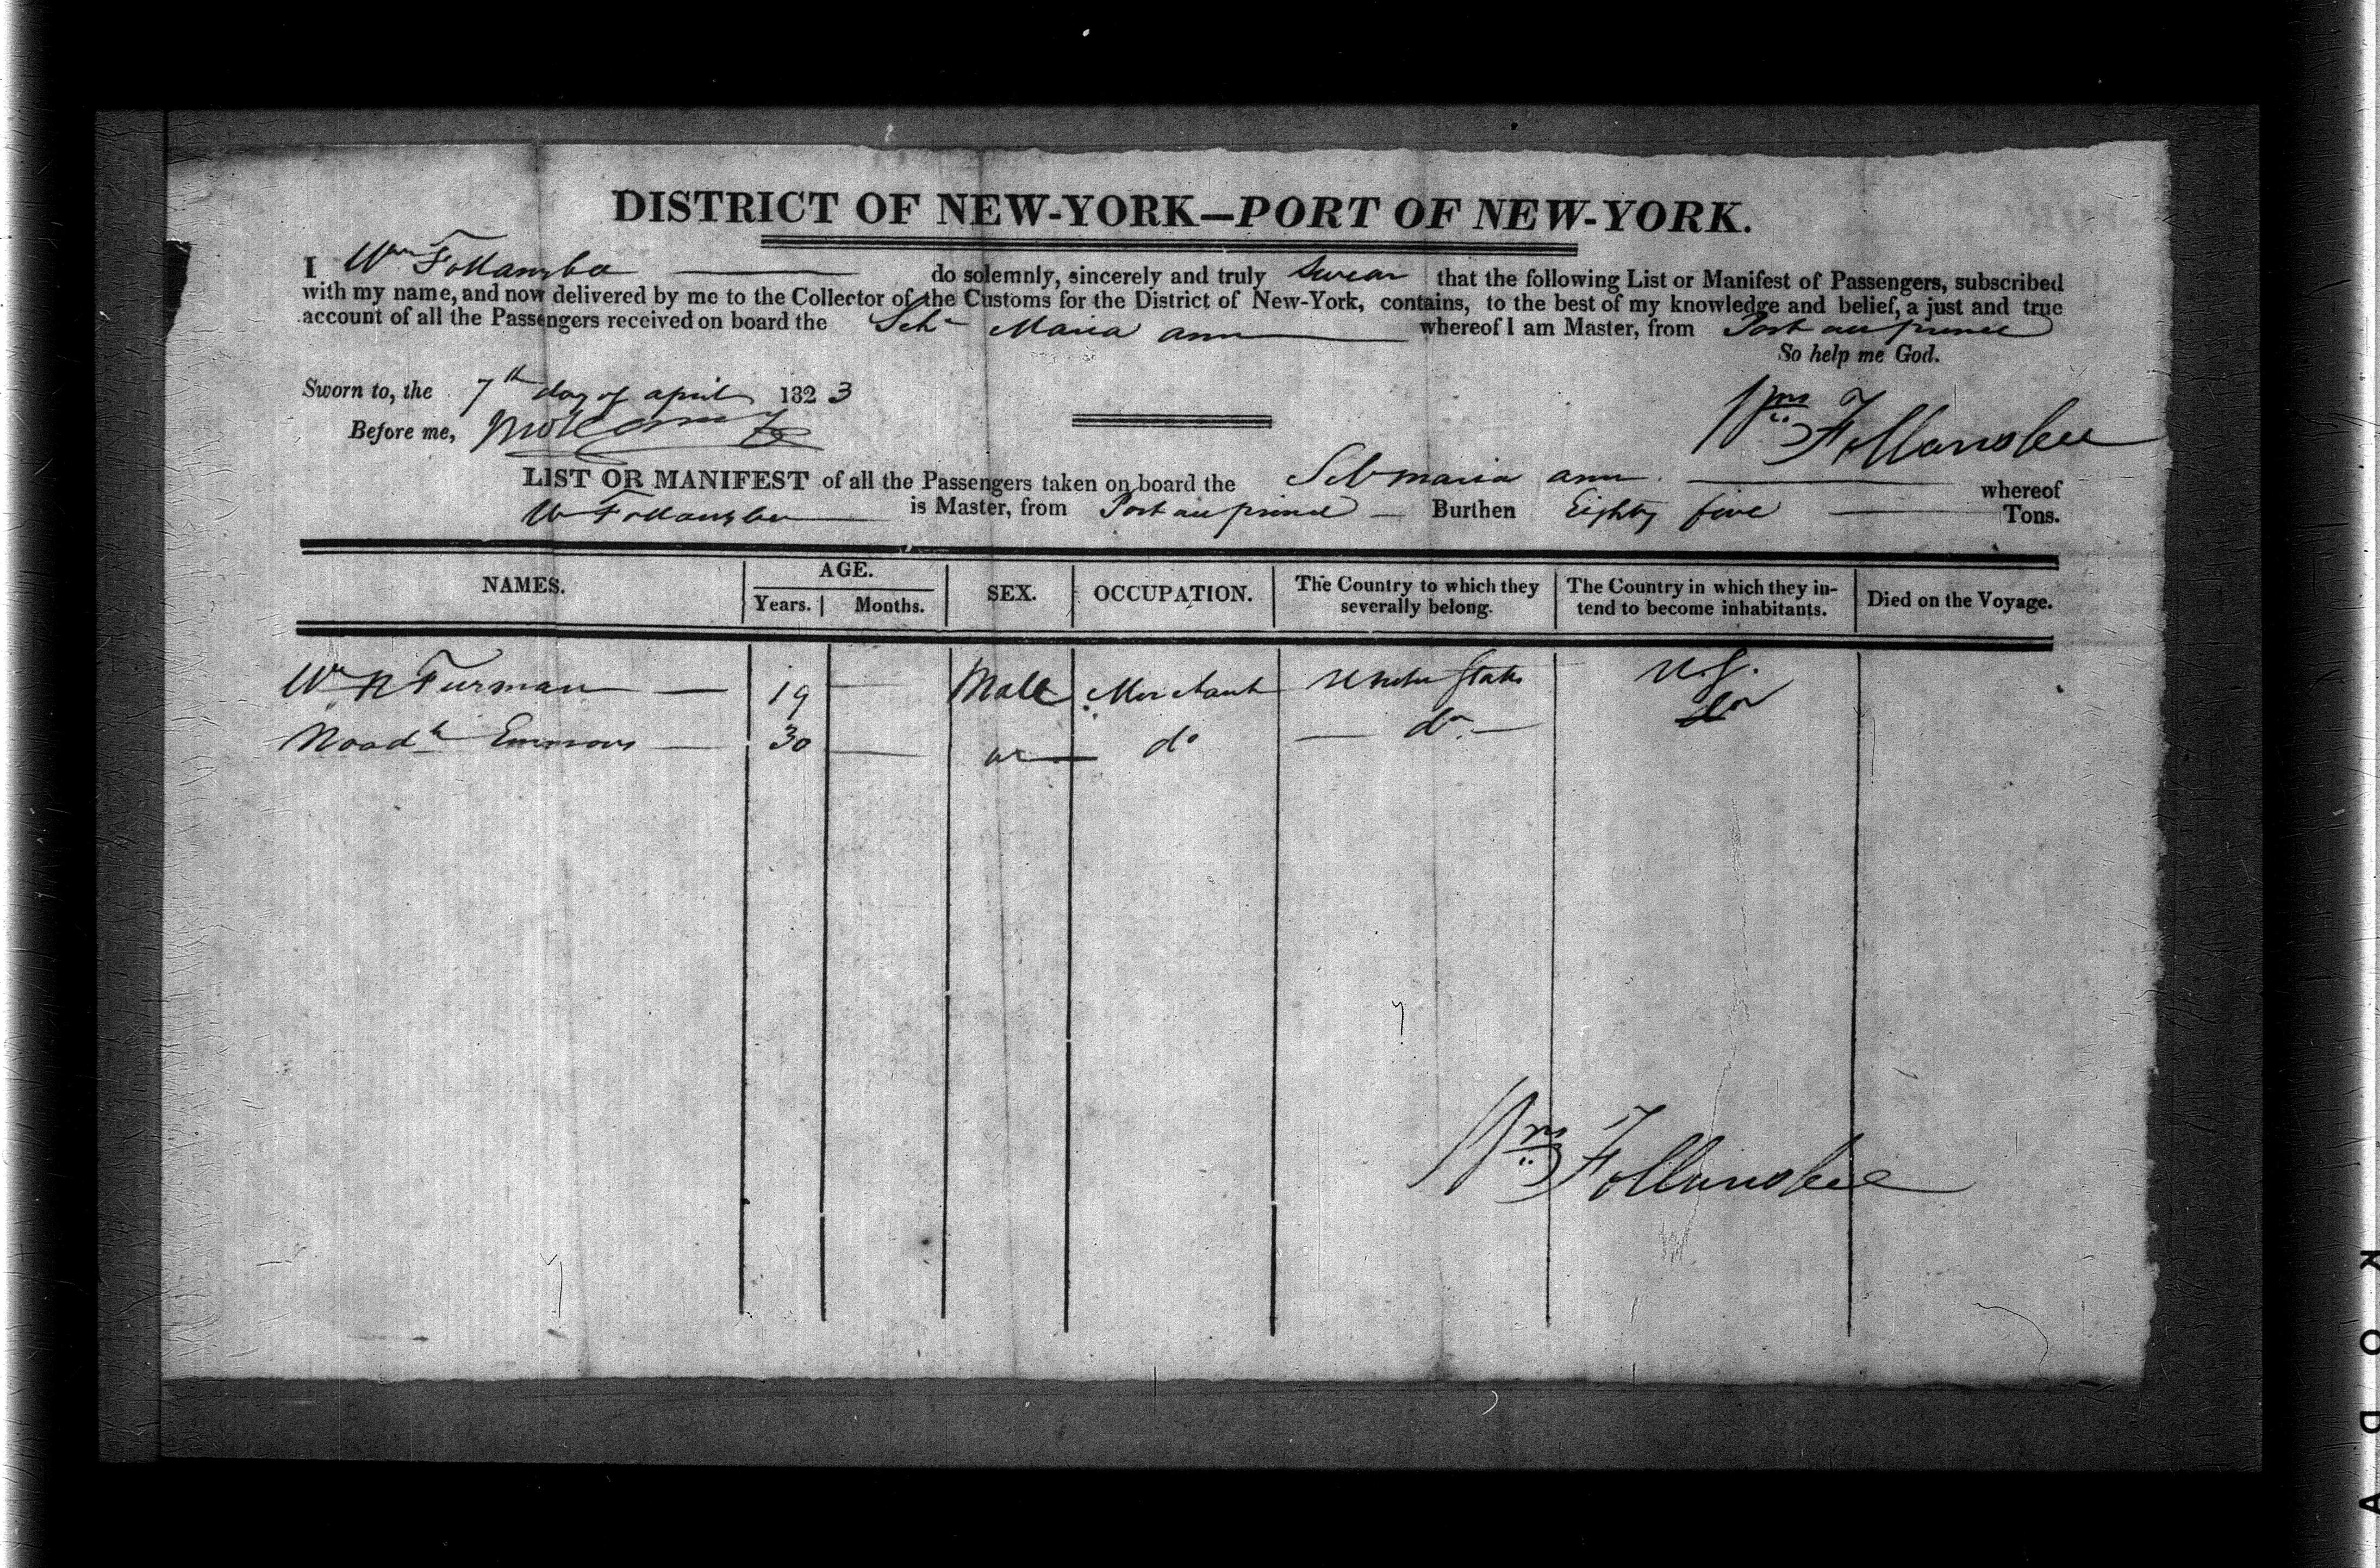 DISTRICT OF NEW-YORK—PORT OF NEW-YORK.
I Wm Follansbee do solemnly, sincerely and truly Swear that the following List or Manifest of Passengers, subscribed
with my name, and now delivered by me to the Collector of the Customs for the District of New-York, contains, to the best of my knowledge and belief, a just and true
account of all the Passengers received on board the Schr Maria ann whereof I am Master, from Port au prince
So help me God.
Sworn to, the 7th day of april 1823
Before me,
Wm Follansbee
LIST OR MANIFEST of all the Passengers taken on board the Sch maria ann whereof
W Follansbee is Master, from Port au prince Burthen Eighty five Tons.
NAMES. AGE. SEX. OCCUPATION. The Country to which they severally belong. The Country in which they intend to become inhabitants. Died on the Voyage.
Years. Months.
Wm R Furman — 19 — Male Merchant United States U.S.
Noadh Emmons — 30 — do — do — do — do
Wm Follansbee
KODA